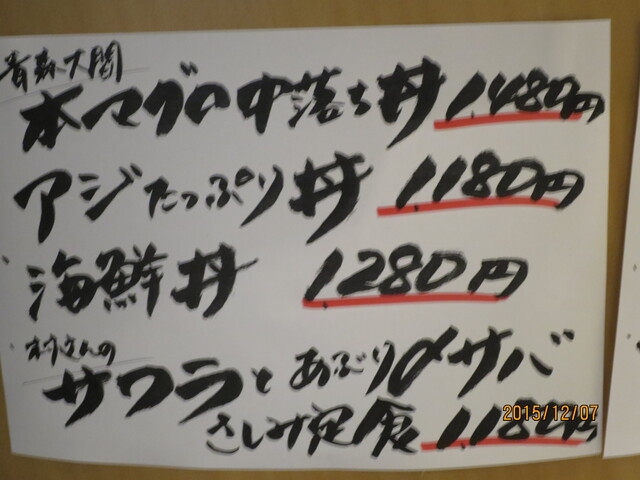 青森大間
本マグロ中落ち丼 1,480円
アジたっぷり丼 1,180円
海鮮丼 1,280円
サワラとあぶり〆サバ
さしみ定食 1,180円
2015/12/07